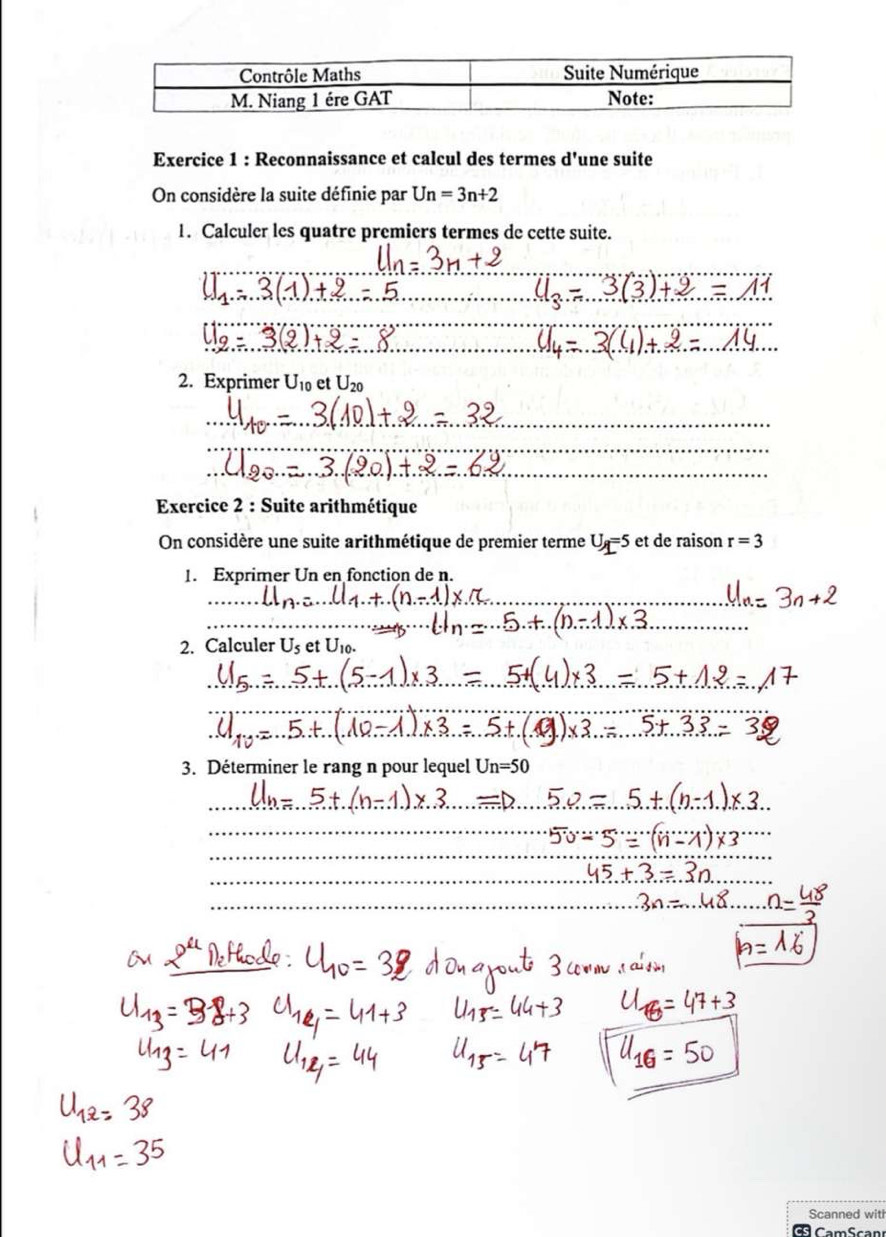 Contrôle Maths Suite Numérique
M. Niang 1 ére GAT Note:
Exercice 1 : Reconnaissance et calcul des termes d'une suite
On considère la suite définie par Un = 3n+2
1. Calculer les quatre premiers termes de cette suite.
Un = 3n+2
U1 = 3(1)+2 = 5 U3 = 3(3)+2 = 11
U2 = 3(2)+2 = 8 U4 = 3(4)+2 = 14
2. Exprimer U10 et U20
U10 = 3(10)+2 = 32
U20 = 3(20)+2 = 62
Exercice 2 : Suite arithmétique
On considère une suite arithmétique de premier terme U1=5 et de raison r = 3
1. Exprimer Un en fonction de n.
Un = U1 + (n-1)×r Un = 3n+2
⇒ Un = 5+(n-1)×3
2. Calculer U5 et U10.
U5 = 5+(5-1)×3 = 5+(4)×3 = 5+12 = 17
U10 = 5+(10-1)×3 = 5+(9)×3 = 5+33 = 32
3. Déterminer le rang n pour lequel Un=50
Un = 5+(n-1)×3 ⇒ 50 = 5+(n-1)×3
50-5 = (n-1)×3
45+3 = 3n
3n = 48 n = 48/3
n = 16
ou 2em Methode: U10 = 32 d on ajoute 3 comme raison
U13 = 38+3 U14 = 41+3 U15 = 44+3 U16 = 47+3
U13 = 41 U14 = 44 U15 = 47 U16 = 50
U12 = 38
U11 = 35
Scanned with
CS CamScann